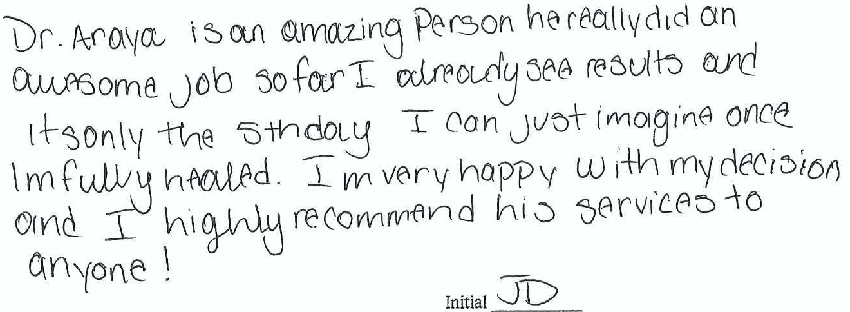 Dr. Araya is an amazing Person he really did an
awesome job so far I already see results and
Itsonly the 5th day I can just imagine once
Im fully healed. I'm very happy with my decision
and I highly recommend his services to
anyone!
Initial JD